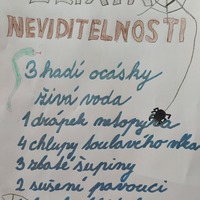 NEVIDITELNOSTI
3 hadí ocásky
živá voda
1 drápek netopýra
4 chlupy toulavého vlka
3 zlaté šupiny
2 sušení pavouci